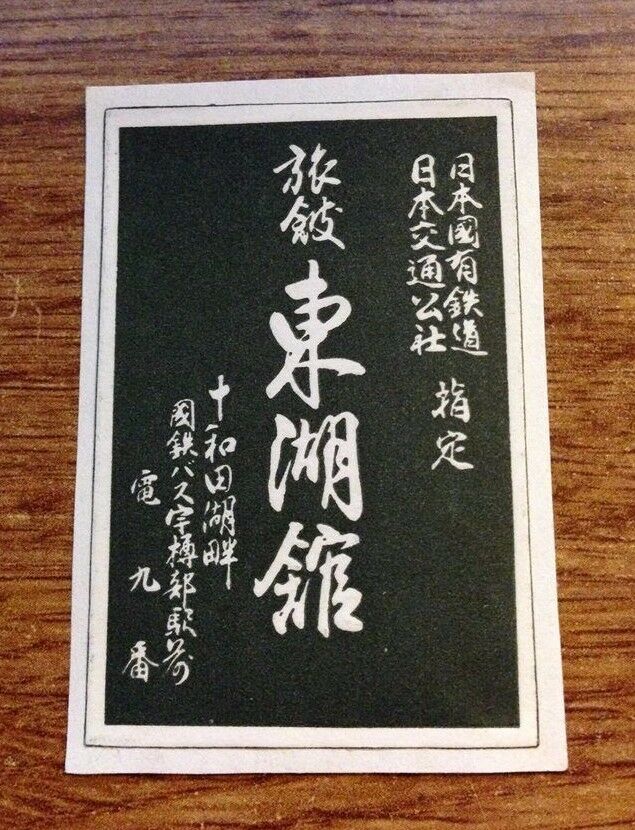 日本國有鉄道
日本交通公社
指定
旅館
東湖館
十和田湖畔
國鉄バス宇樽部駅前
電九番